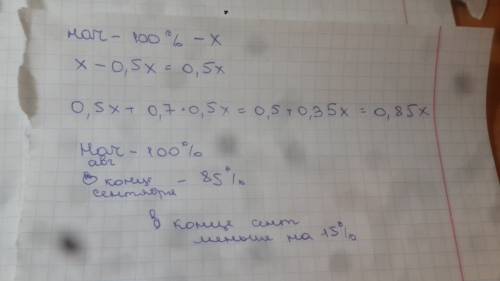 нач - 100% - x
x - 0,5x = 0,5x
0,5x + 0,7·0,5x = 0,5+0,35x = 0,85x
Нач - 100%
авг
в конце - 85%
сентября
в конце сент
меньше на 15%